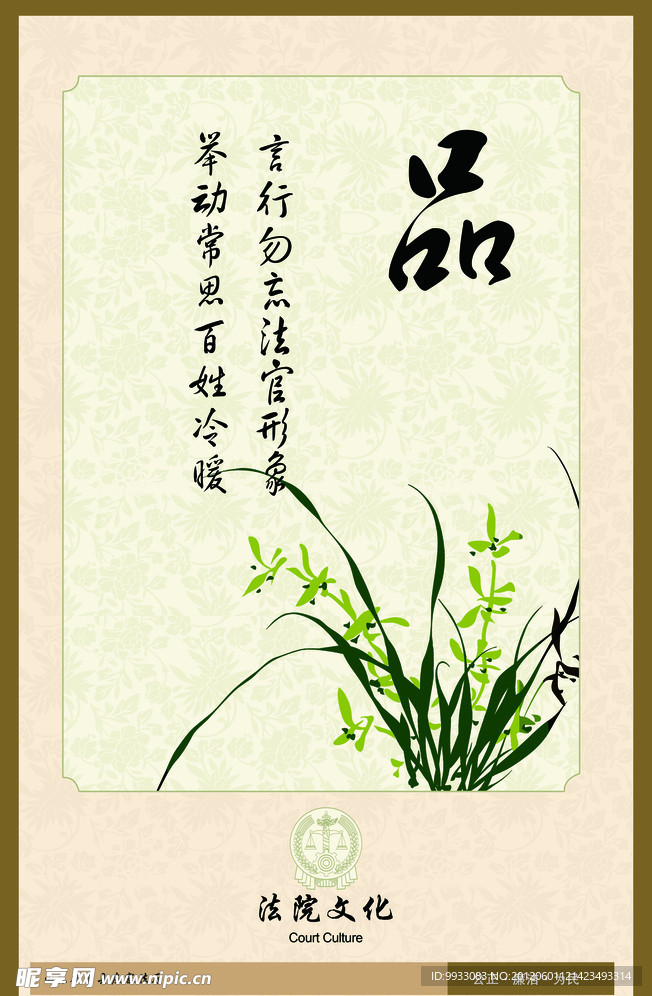 品
言行勿忘法官形象
举动常思百姓冷暖
法院文化
Court Culture
昵享网 www.nipic.cn
ID:9933083 NO:20120601121423493314
公正 廉洁 为民